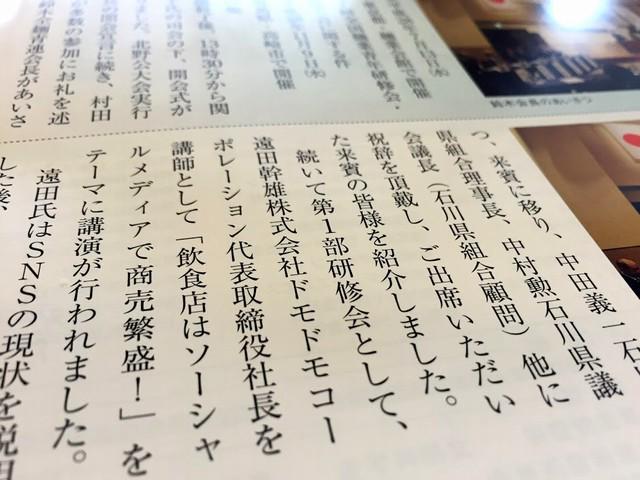 会・
麺業会館で開催
に関する件
月9日㈬
高崎市で開催
13時30分から関
の司会の下、開会式が
ました。北野公大会実行
開会宣言に続き、村田
多数の参加にお礼を述
連会長があいさ
鈴木会長のあいさつ
つ、来賓に移り、中田義一石
県組合理事長、中村勲石川県議
会議長（石川県組合顧問）他に
祝辞を頂戴し、ご出席いただい
た来賓の皆様を紹介しました。
続いて第1部研修会として、
遠田幹雄株式会社ドモドモコー
ポレーション代表取締役社長を
講師として「飲食店はソーシャ
ルメディアで商売繁盛！」を
テーマに講演が行われました。
遠田氏はSNSの現状を説明
した後、